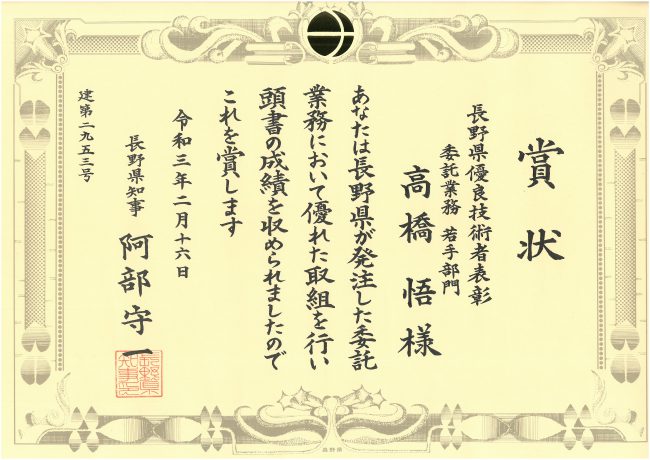 賞状
長野県優良技術者表彰
委託業務 若手部門
高橋 悟 様
あなたは長野県が発注した委託
業務において優れた取組を行い
頭書の成績を収められましたので
これを賞します
令和三年二月十六日
長野県知事 阿部守一
長野県知事之印
建第二九五三号
長野県